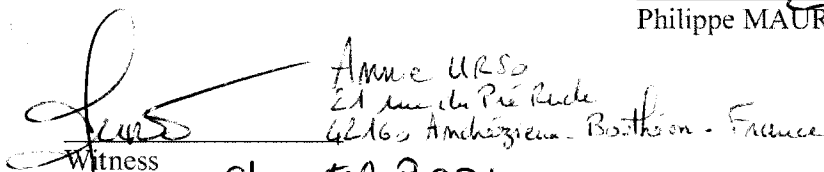 Philippe MAUR
Annie URSO
21 rue du Pré Rude
42160 Andrézieux - Bouthéon - France
Witness